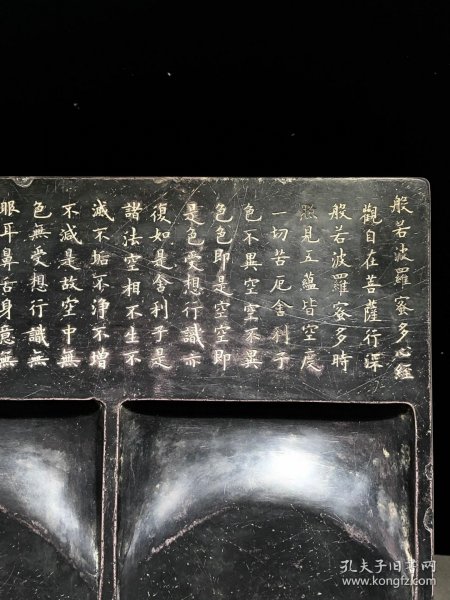 般若波羅蜜多心經
觀自在菩薩行深
般若波羅蜜多時
照見五蘊皆空度
一切苦厄舍利子
色不異空空不異
色色即是空空即
是色受想行識亦
復如是舍利子是
諸法空相不生不
滅不垢不淨不增
不減是故空中無
色無受想行識無
眼耳鼻舌身意無
孔夫子旧书网
www.kongfz.com